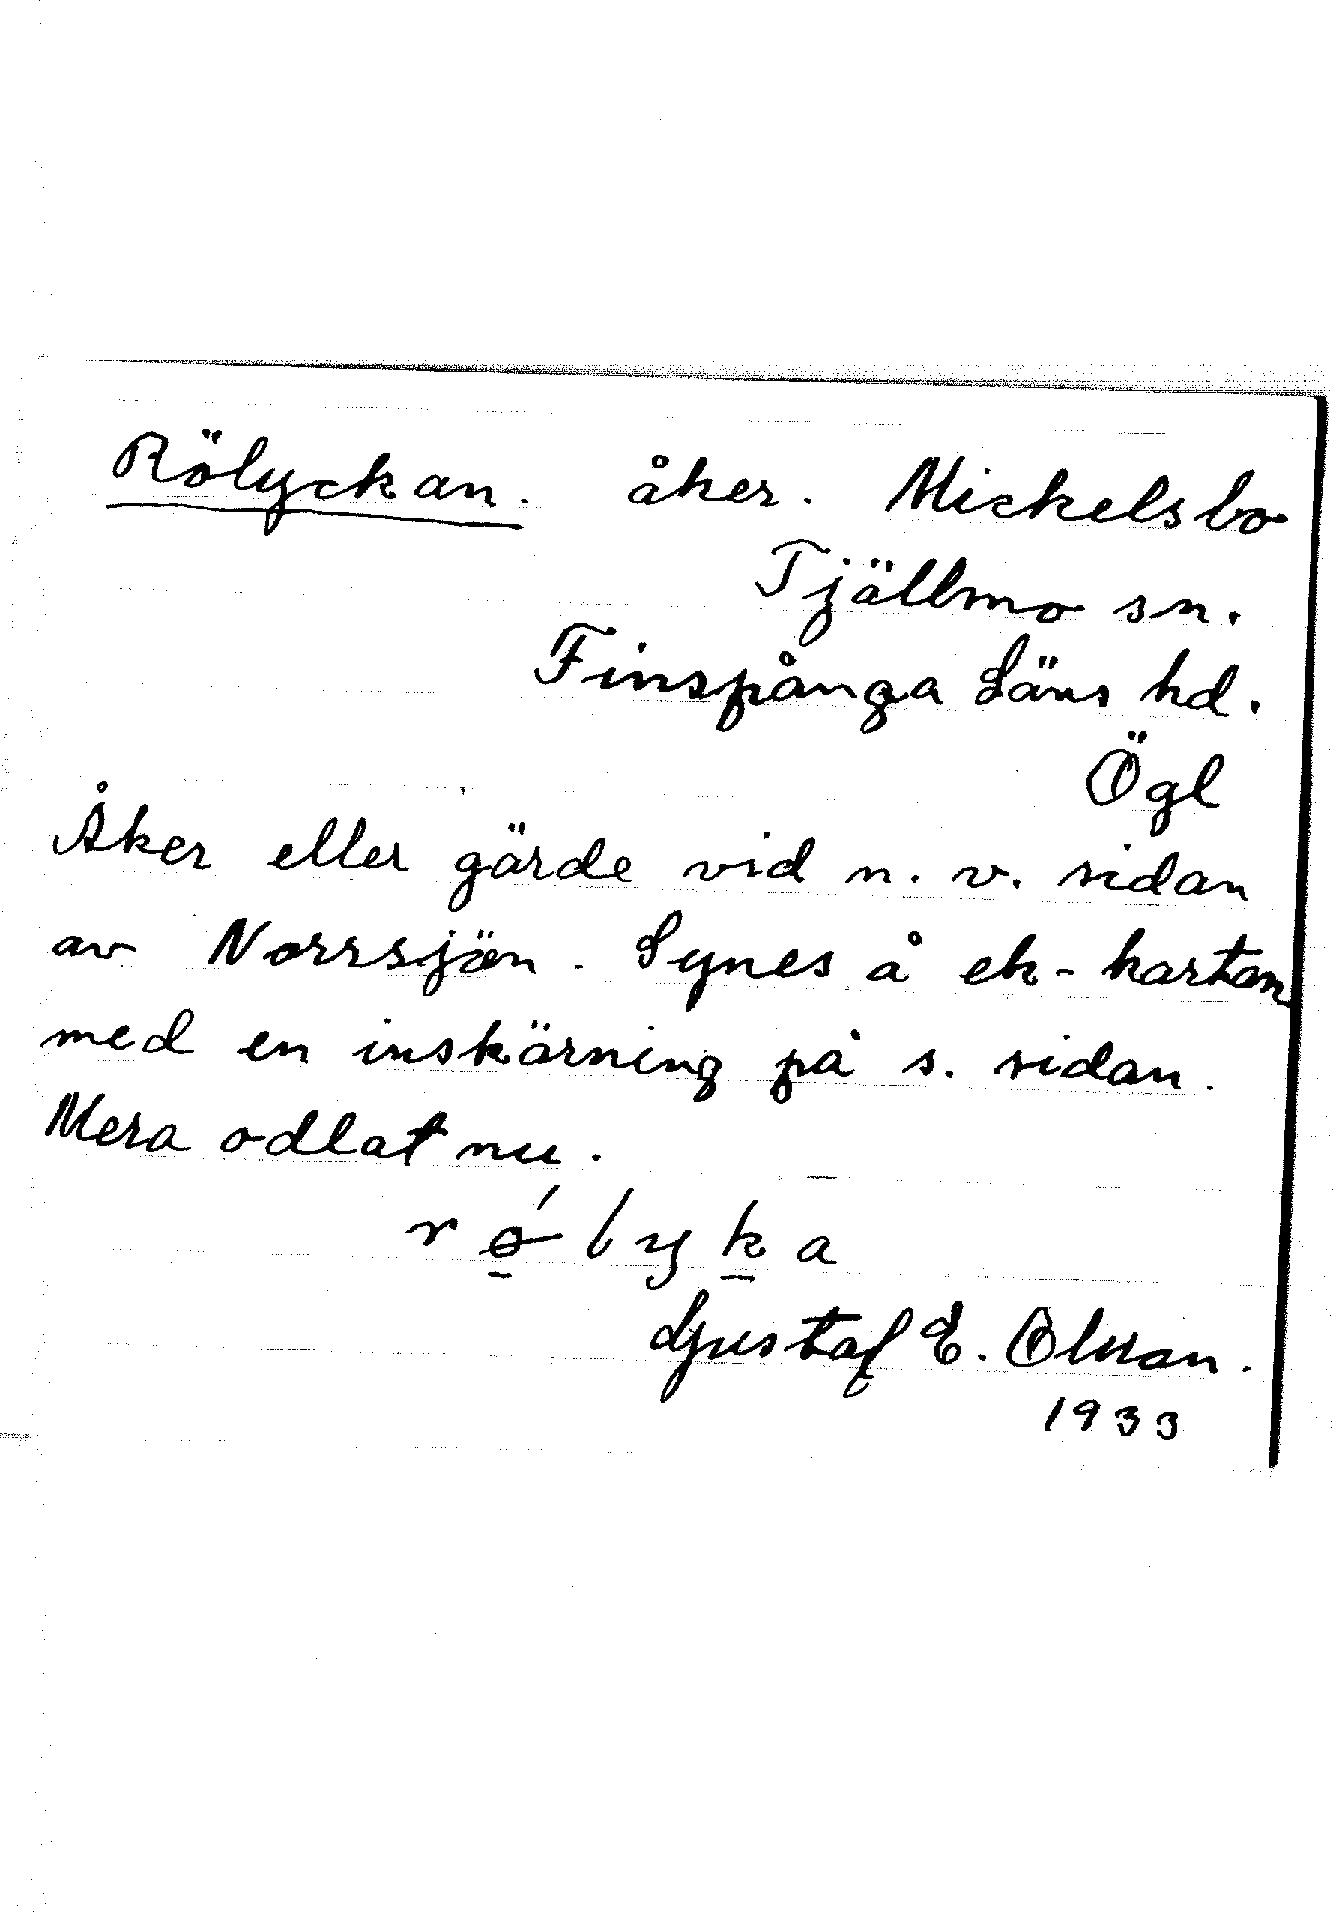 Rölyckan. åker. Mickelsbo
Tjällmo sn.
Finspånga Läns hd.
Ögl
Åker eller gärde vid n. v. sidan
av Norrsjön. Synes å ek-kartan
med en inskärning på s. sidan.
Mera odlat nu.
rǿ̱lyḵa
Gustaf E. Olsson.
1933